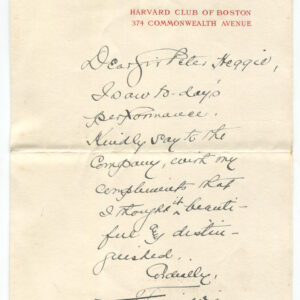 HARVARD CLUB OF BOSTON
374 COMMONWEALTH AVENUE
Dear Sir Peter Heggie,
I saw to-day's
performance.
Kindly say to the
Company, with my
compliments that
I thought it beauti-
ful & distin-
guished.
Cordially,